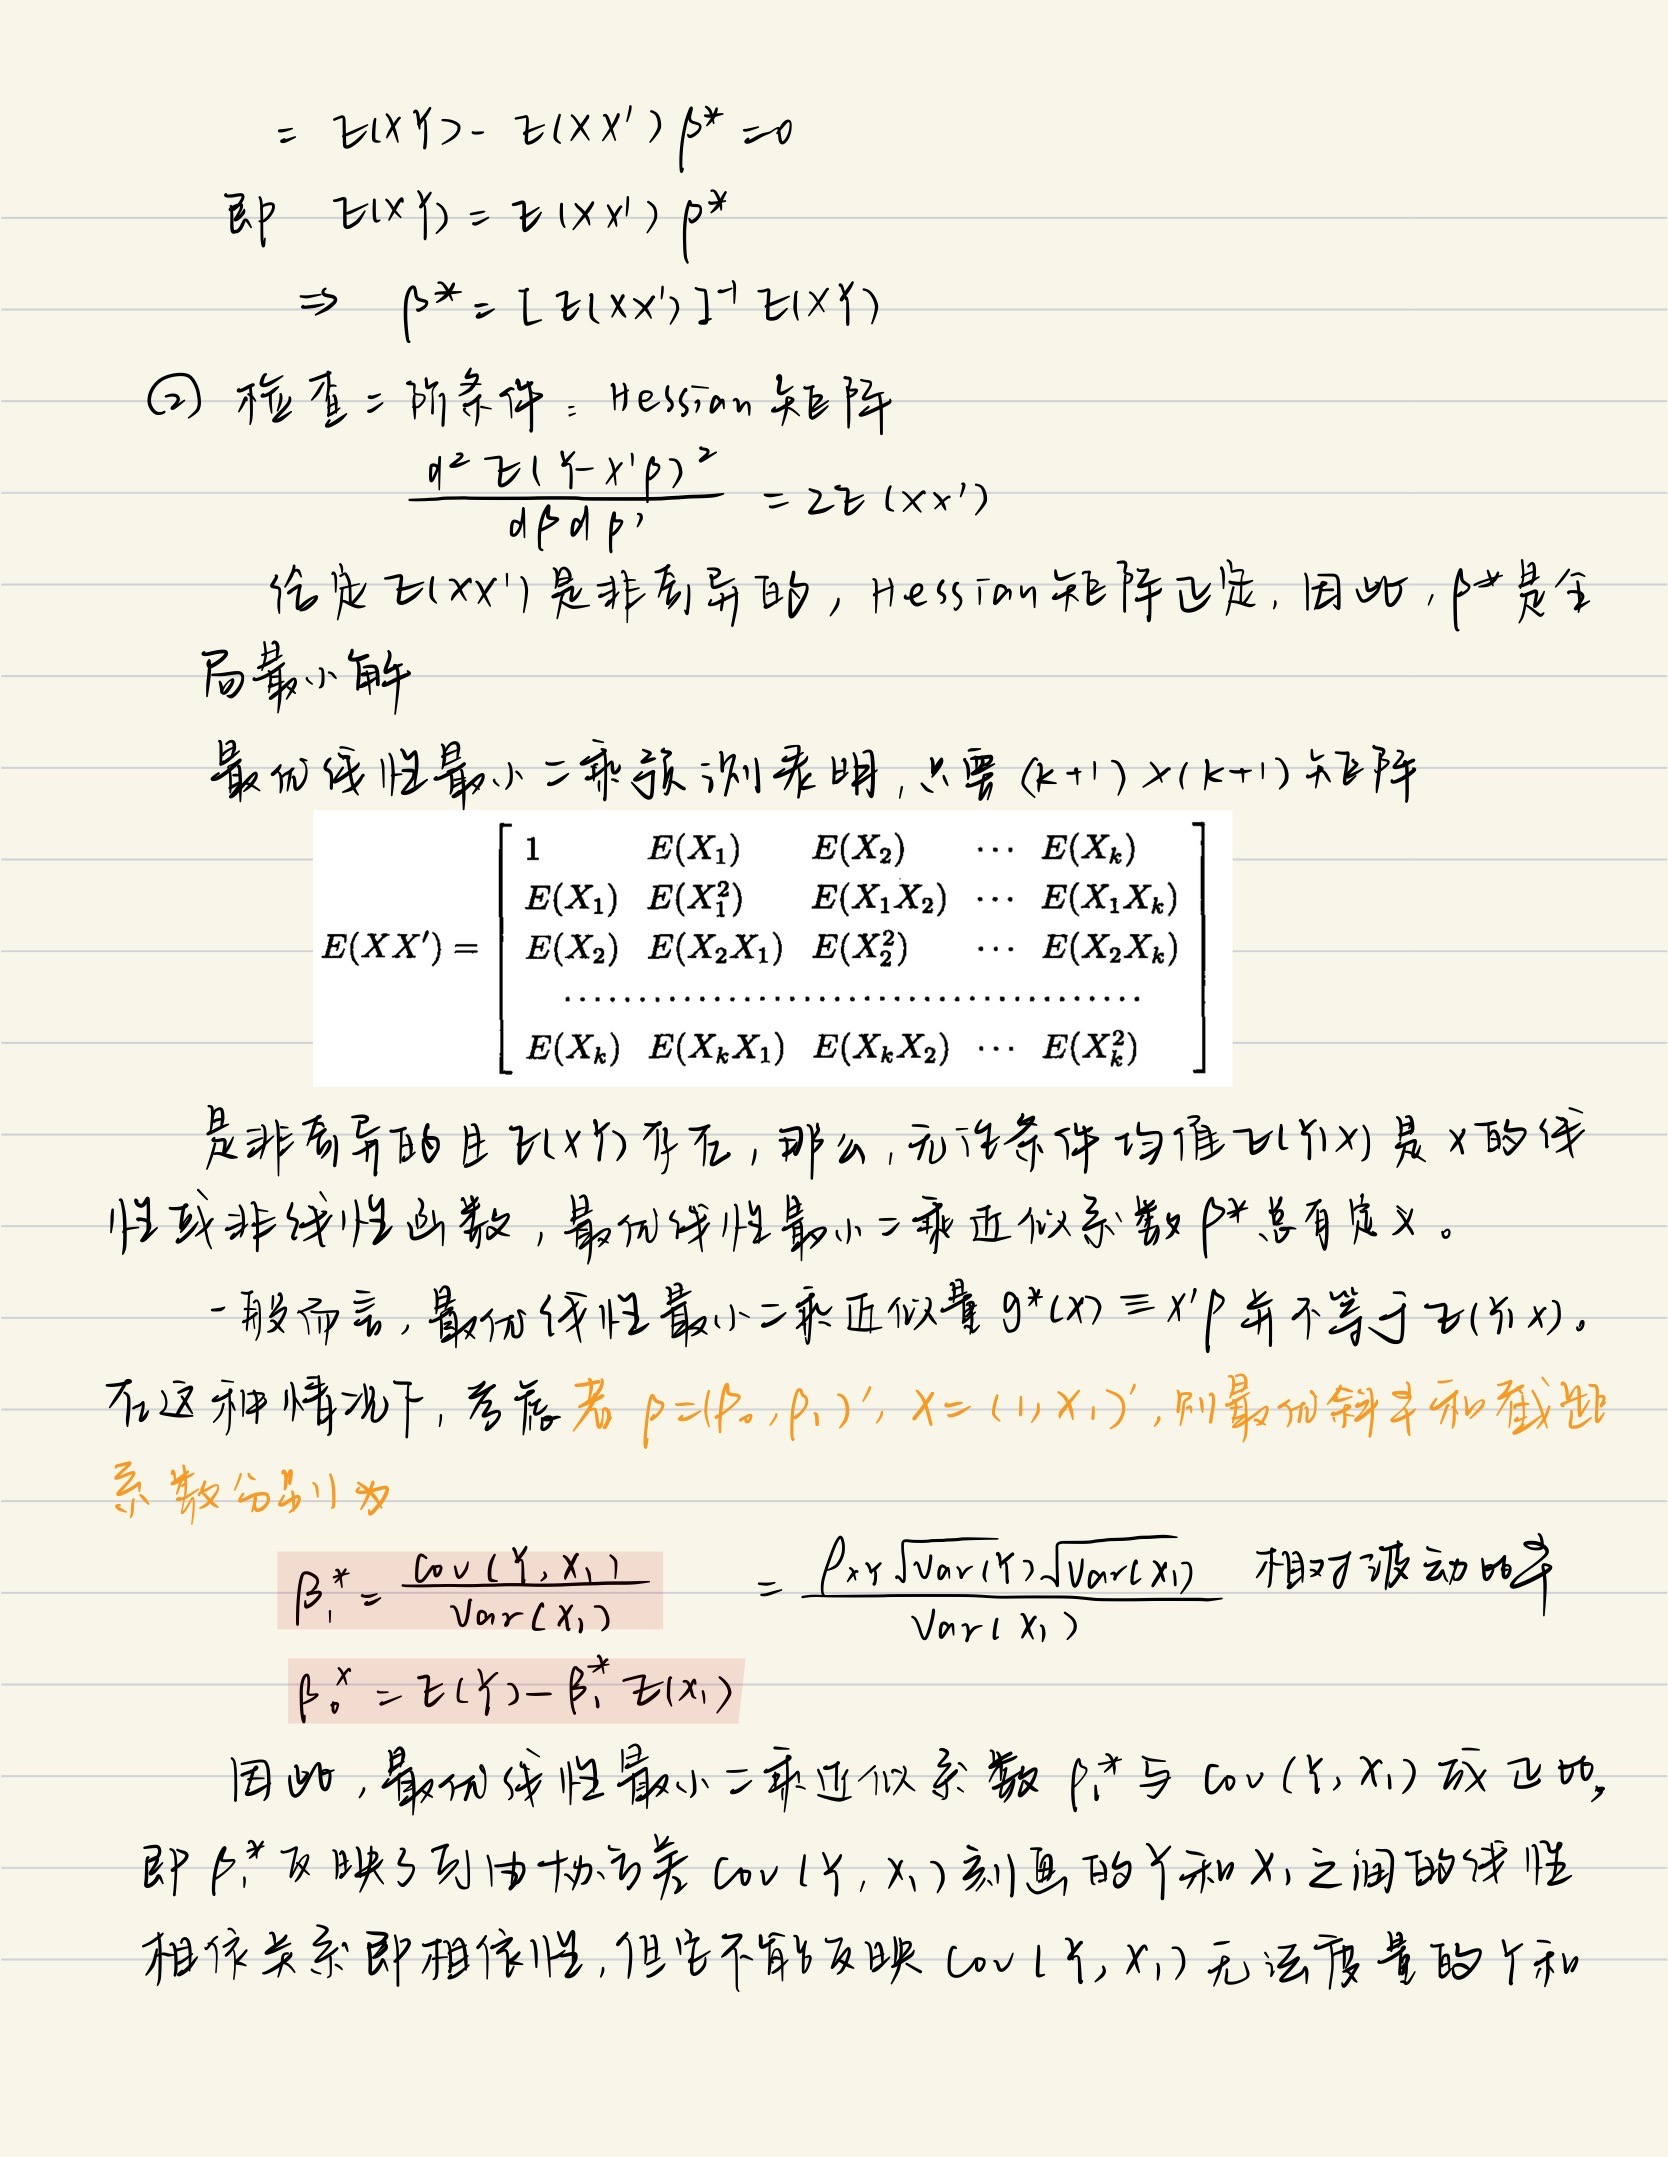 = E(XY) - E(XX')β* = 0
即 E(XY) = E(XX')β*
⇒ β* = [E(XX')]⁻¹ E(XY)
② 检查二阶条件: Hessian 矩阵
d²E(Y-X'β)² / dβdβ' = 2E(XX')
给定 E(XX') 是非奇异的, Hessian 矩阵正定, 因此, β* 是全
局最小解
最优线性最小二乘预测表明, 只要 (k+1)×(k+1) 矩阵
1 E(X₁) E(X₂) ⋯ E(Xₖ)
E(X₁) E(X₁²) E(X₁X₂) ⋯ E(X₁Xₖ)
E(XX') = E(X₂) E(X₂X₁) E(X₂²) ⋯ E(X₂Xₖ)
.......................................
E(Xₖ) E(XₖX₁) E(XₖX₂) ⋯ E(Xₖ²)
是非奇异的且 E(XY) 存在, 那么, 无论条件均值 E(Y|X) 是 X 的线
性或非线性函数, 最优线性最小二乘近似系数 β* 总有定义。
一般而言, 最优线性最小二乘近似量 g*(X) ≡ X'β 并不等于 E(Y|X)。
在这种情况下, 考虑 若 β=(β₀, β₁)', X=(1, X₁)', 则最优斜率和截距
系数分别为
β₁* = Cov(Y, X₁) / Var(X₁) = ρXY √Var(Y) √Var(X₁) / Var(X₁) 相对波动的率
β₀* = E(Y) - β₁* E(X₁)
因此, 最优线性最小二乘近似系数 β₁* 与 Cov(Y, X₁) 成正比,
即 β₁* 反映了由协方差 Cov(Y, X₁) 刻画的 Y 和 X₁ 之间的线性
相依关系即相依性, 但它不能反映 Cov(Y, X₁) 无法度量的 Y 和